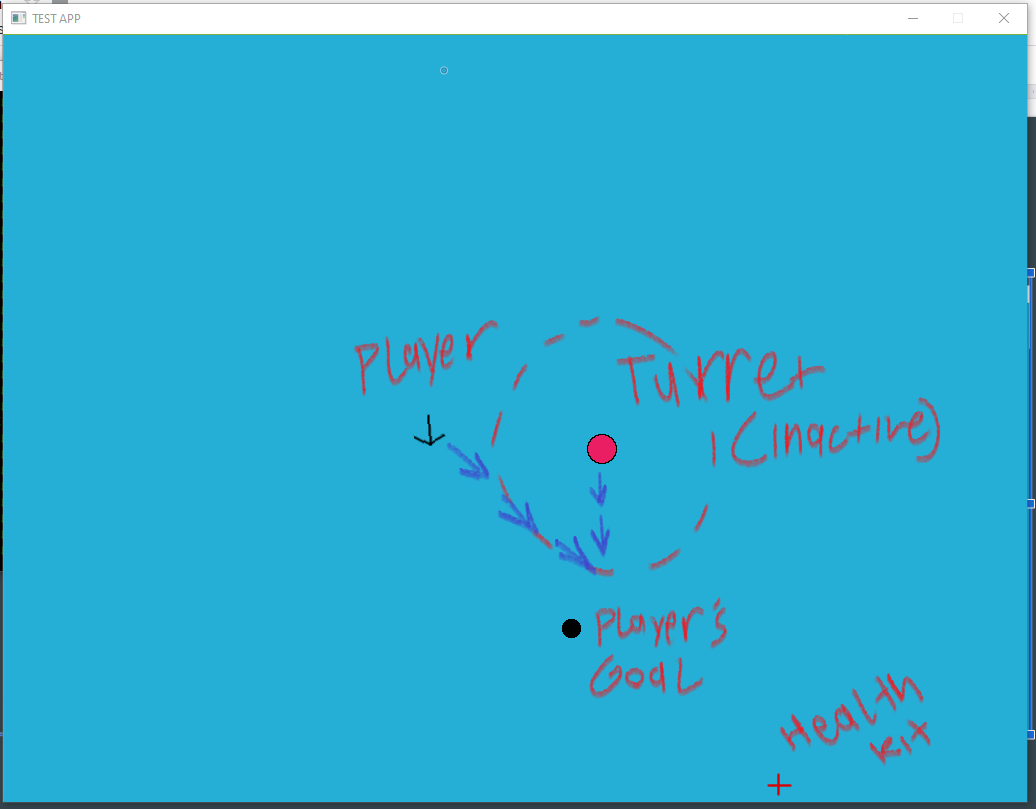 TEST APP
Player
Turret
(inactive)
Player's
Goal
Health
Kit